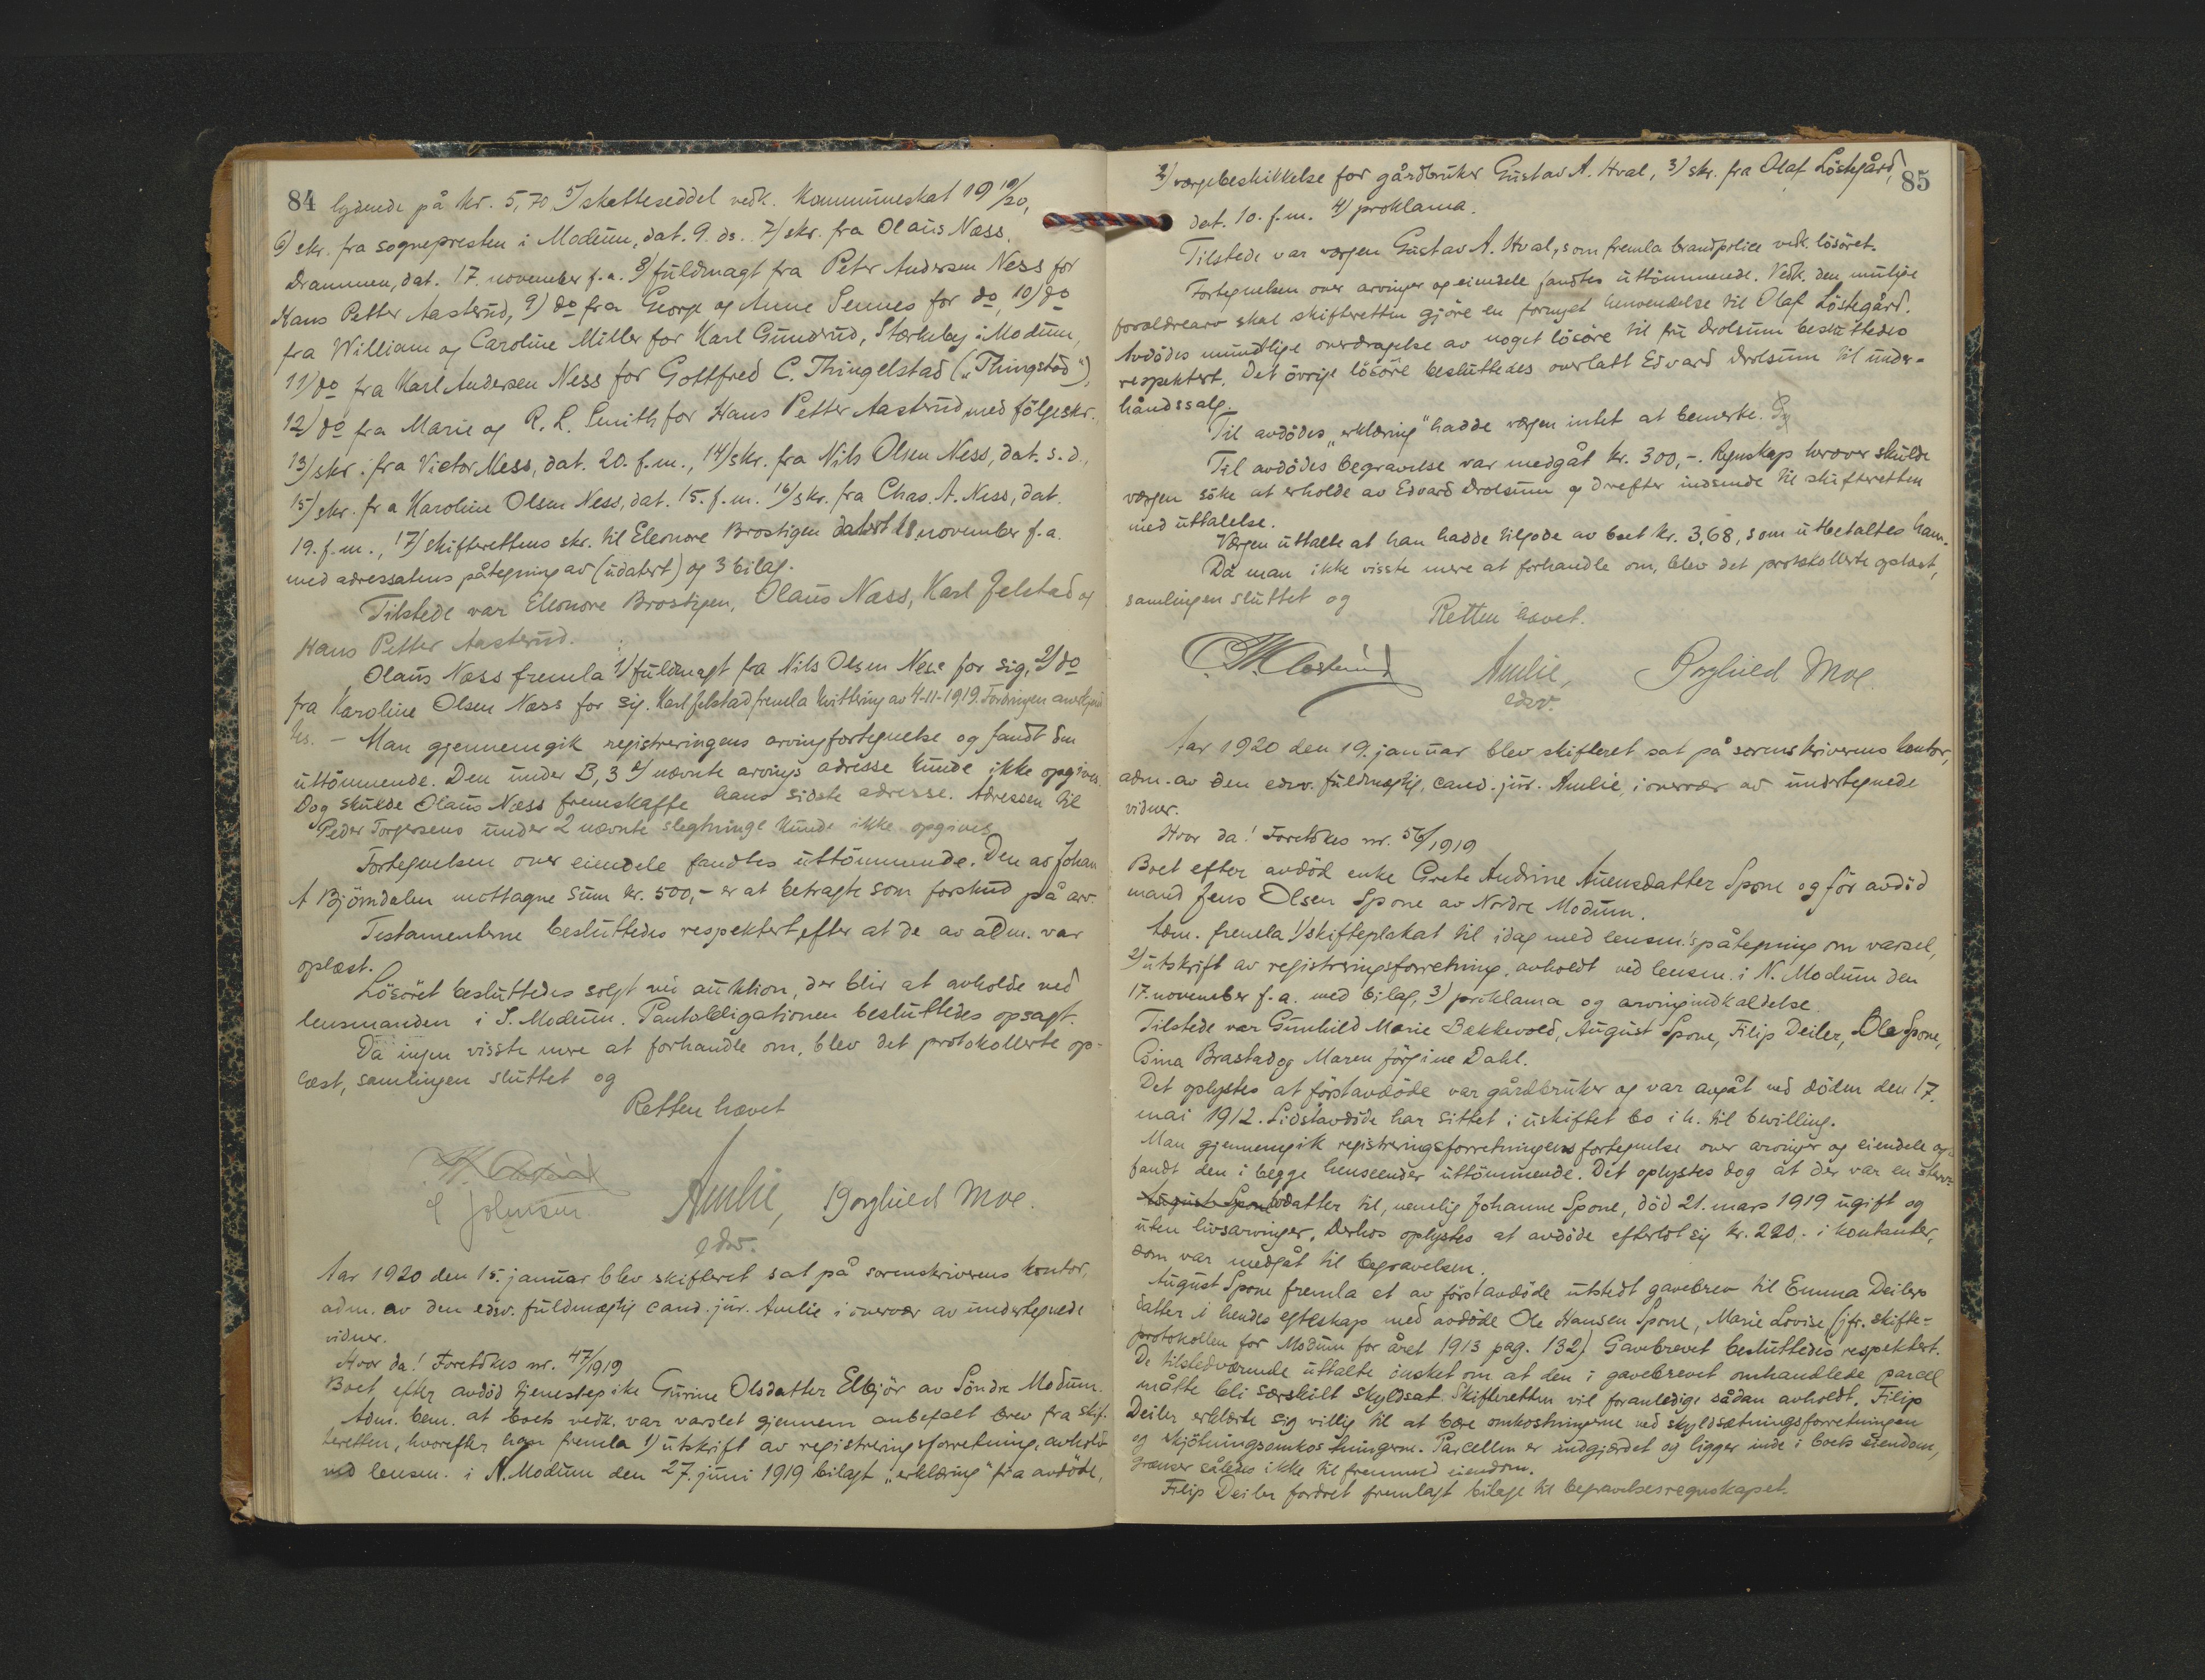 84 lydende på kr. 5,70 5/ skatteseddel vedk. kommuneskat 19 19/20,
6) skr. fra sognepresten i Modum, dat. 9. ds. 7/ skr. fra Olaus Næss,
Drammen, dat. 17. november f.a. 8/ fuldmagt fra Peter Andersen Ness for
Hans Petter Aasterud, 9) do fra George og Anne Sennes for do, 10/ do
fra William og Caroline Miller for Karl Gunderud, Stærkeby i Modum,
11) do fra Karl Andersen Ness for Gottfred C. Thingelstad („Thingstad"),
12) do fra Marie og R. L. Smith for Hans Petter Aasterud med følgeskr.,
13) skr. fra Victor Ness, dat. 20. f.m., 14/ skr. fra Nils Olsen Ness, dat. s.d.,
15/ skr. fra Karoline Olsen Ness, dat. 15. f.m. 16/ skr. fra Chas. A. Ness, dat.
19. f.m., 17/ skifterettens skr. til Eleonore Brostigen datert 18 november f.a.
med adressatens påtegning av (udatert) og 3 bilag.
Tilstede var Eleonore Brostigen, Olaus Næss, Karl Jelstad og
Hans Petter Aasterud.
Olaus Næss fremla 1/ fuldmagt fra Nils Olsen Ness for sig, 2/ do
fra Karoline Olsen Næss for sig. Karl Jelstad fremla kvittering av 4-11-1919. Fordringen anerkjend
tes. – Man gjennemgik registreringens arvingfortegnelse og fandt den
uttömmende. Den under B, 3 nævnte arvings adresse kunde ikke opgives.
Dog skulde Olaus Næss fremskaffe hans sidste adresse. Adressen til
Peder Torgersens under 2 nævnte slegtninge kunde ikke opgives.
Fortegnelsen over eiendele fandtes uttömmende. Den av Johan
A Bjömdalen mottagne sum kr. 500,- er at betragte som forskud på arv.
Testamenterne besluttedes respektert, efter at de av adm. var
oplæst.
Lösöret besluttedes solgt ved auktion, der blir at avholde ved
lensmanden i S. Modum. Pantobligationen besluttedes opsagt.
Da ingen visste mere at forhandle om, blev det protokollerte op-
læst, samlingen sluttet og
Retten hævet
Johnsen. Amlie, Borghild Moe.
edsv.
Aar 1920 den 15. januar blev skifteret sat på sorenskriverens kontor,
adm. av den edsv. fuldmægtig cand. jur. Amlie i overvær av undertegnede
vidner.
Hvor da! Foretokes nr. 47/1919
Boet efter avdöd tjenestepike Gurine Olsdatter Elbjör av Söndre Modum.
Adm. bem. at boets vedk. var varslet gjennem anbefalt brev fra skif-
teretten, hvorefter han fremla 1) utskrift av registreringsforretning, avholdt
ved lensm. i N. Modum den 27. juni 1919 bilagt „erklæring" fra avdöde,
85
2) værgebeskikkelse for gårdbruker Gustav A. Hval, 3) skr. fra Olaf Löstegård,
dat. 10. f.m. 4) proklama.
Tilstede var værgen Gustav A. Hval, som fremla brandpolice vedk. lösöret.
Fortegnelsen over arvinger og eiendele fandtes uttömmende. Vedk. den mulige
forældrearv skal skifteretten gjöre en fornyet henvendelse til Olaf Löstegård.
Avdödes mundtlige overdragelse av noget lösöre til fru Drolsum besluttedes
respektert. Det övrige lösöre besluttedes overlatt Edvard Drolsum til under-
håndssalg.
Til avdödes „erklæring" hadde værgen intet at bemerke.
Til avdödes begravelse var medgåt kr. 300,-. Regnskap herover skulde
værgen söke at erholde av Edvard Drolsum og derefter indsende til skifteretten
med uttalelse.
Værgen uttalte at han hadde tilgode av boet kr. 3,68, som utbetaltes ham.
Da man ikke visste mere at forhandle om, blev det protokollerte oplæst,
samlingen sluttet og
Retten hævet.
Amlie, Borghild Moe.
edsv.
Aar 1920 den 19. januar blev skifteret sat på sorenskriverens kontor,
adm. av den edsv. fuldmægtig, cand. jur. Amlie, i overvær av undertegnede
vidner.
Hvor da! Foretokes nr. 56/1919
Boet efter avdöd enke Grete Andrine Auensdatter Spone og för avdöd
mand Jens Olsen Spone av Nordre Modum.
Adm. fremla 1/ skifteplakat til idag med lensm.'s påtegning om varsel,
2) utskrift av registreringsforretning, avholdt ved lensm. i N. Modum den
17. november f.a. med bilag, 3) proklama og arvingindkaldelse.
Tilstede var Gunhild Marie Bækkevold, August Spone, Filip Deiler, Ole Spone,
Gina Brastad og Maren Jörgine Dahl.
Det oplystes at förstavdöde var gårdbruker og var avgåt ved döden den 17.
mai 1912. Sidstavdöde har sittet i uskiftet bo i h. til bevilling.
Man gjennemgik registreringsforretningens fortegnelse over arvinger og eiendele og
fandt den i begge henseender uttömmende. Det oplystes dog at der var en
datter til, nemlig Johanne Spone, död 21. mars 1919 ugift og
uten livsarvinger. Derhos oplystes at avdöde efterlot sig kr. 220,- i kontanter,
som var medgåt til begravelsen.
August Spone fremla et av förstavdöde utstedt gavebrev til Emma Deilers
datter i hendes egteskap med avdöde Ole Hansen Spone, Marie Lovise (jfr. skifte-
protokollen for Modum for året 1913 pag. 132). Gavebrevet besluttedes respektert.
De tilstedværende uttalte önsket om at den i gavebrevet omhandlede parcel
måtte bli særskilt skyldsat. Skifteretten vil foranledige sådan avholdt. Filip
Deiler erklærte sig villig til at bære omkostningerne ved skyldsætningsforretningen
og skjötningsomkostningerne. Parcellen er indgjærdet og ligger inde i boets eiendom,
grænser således ikke til fremmed eiendom.
Filip Deiler fordret fremlagt bilage til begravelsesregnskapet.